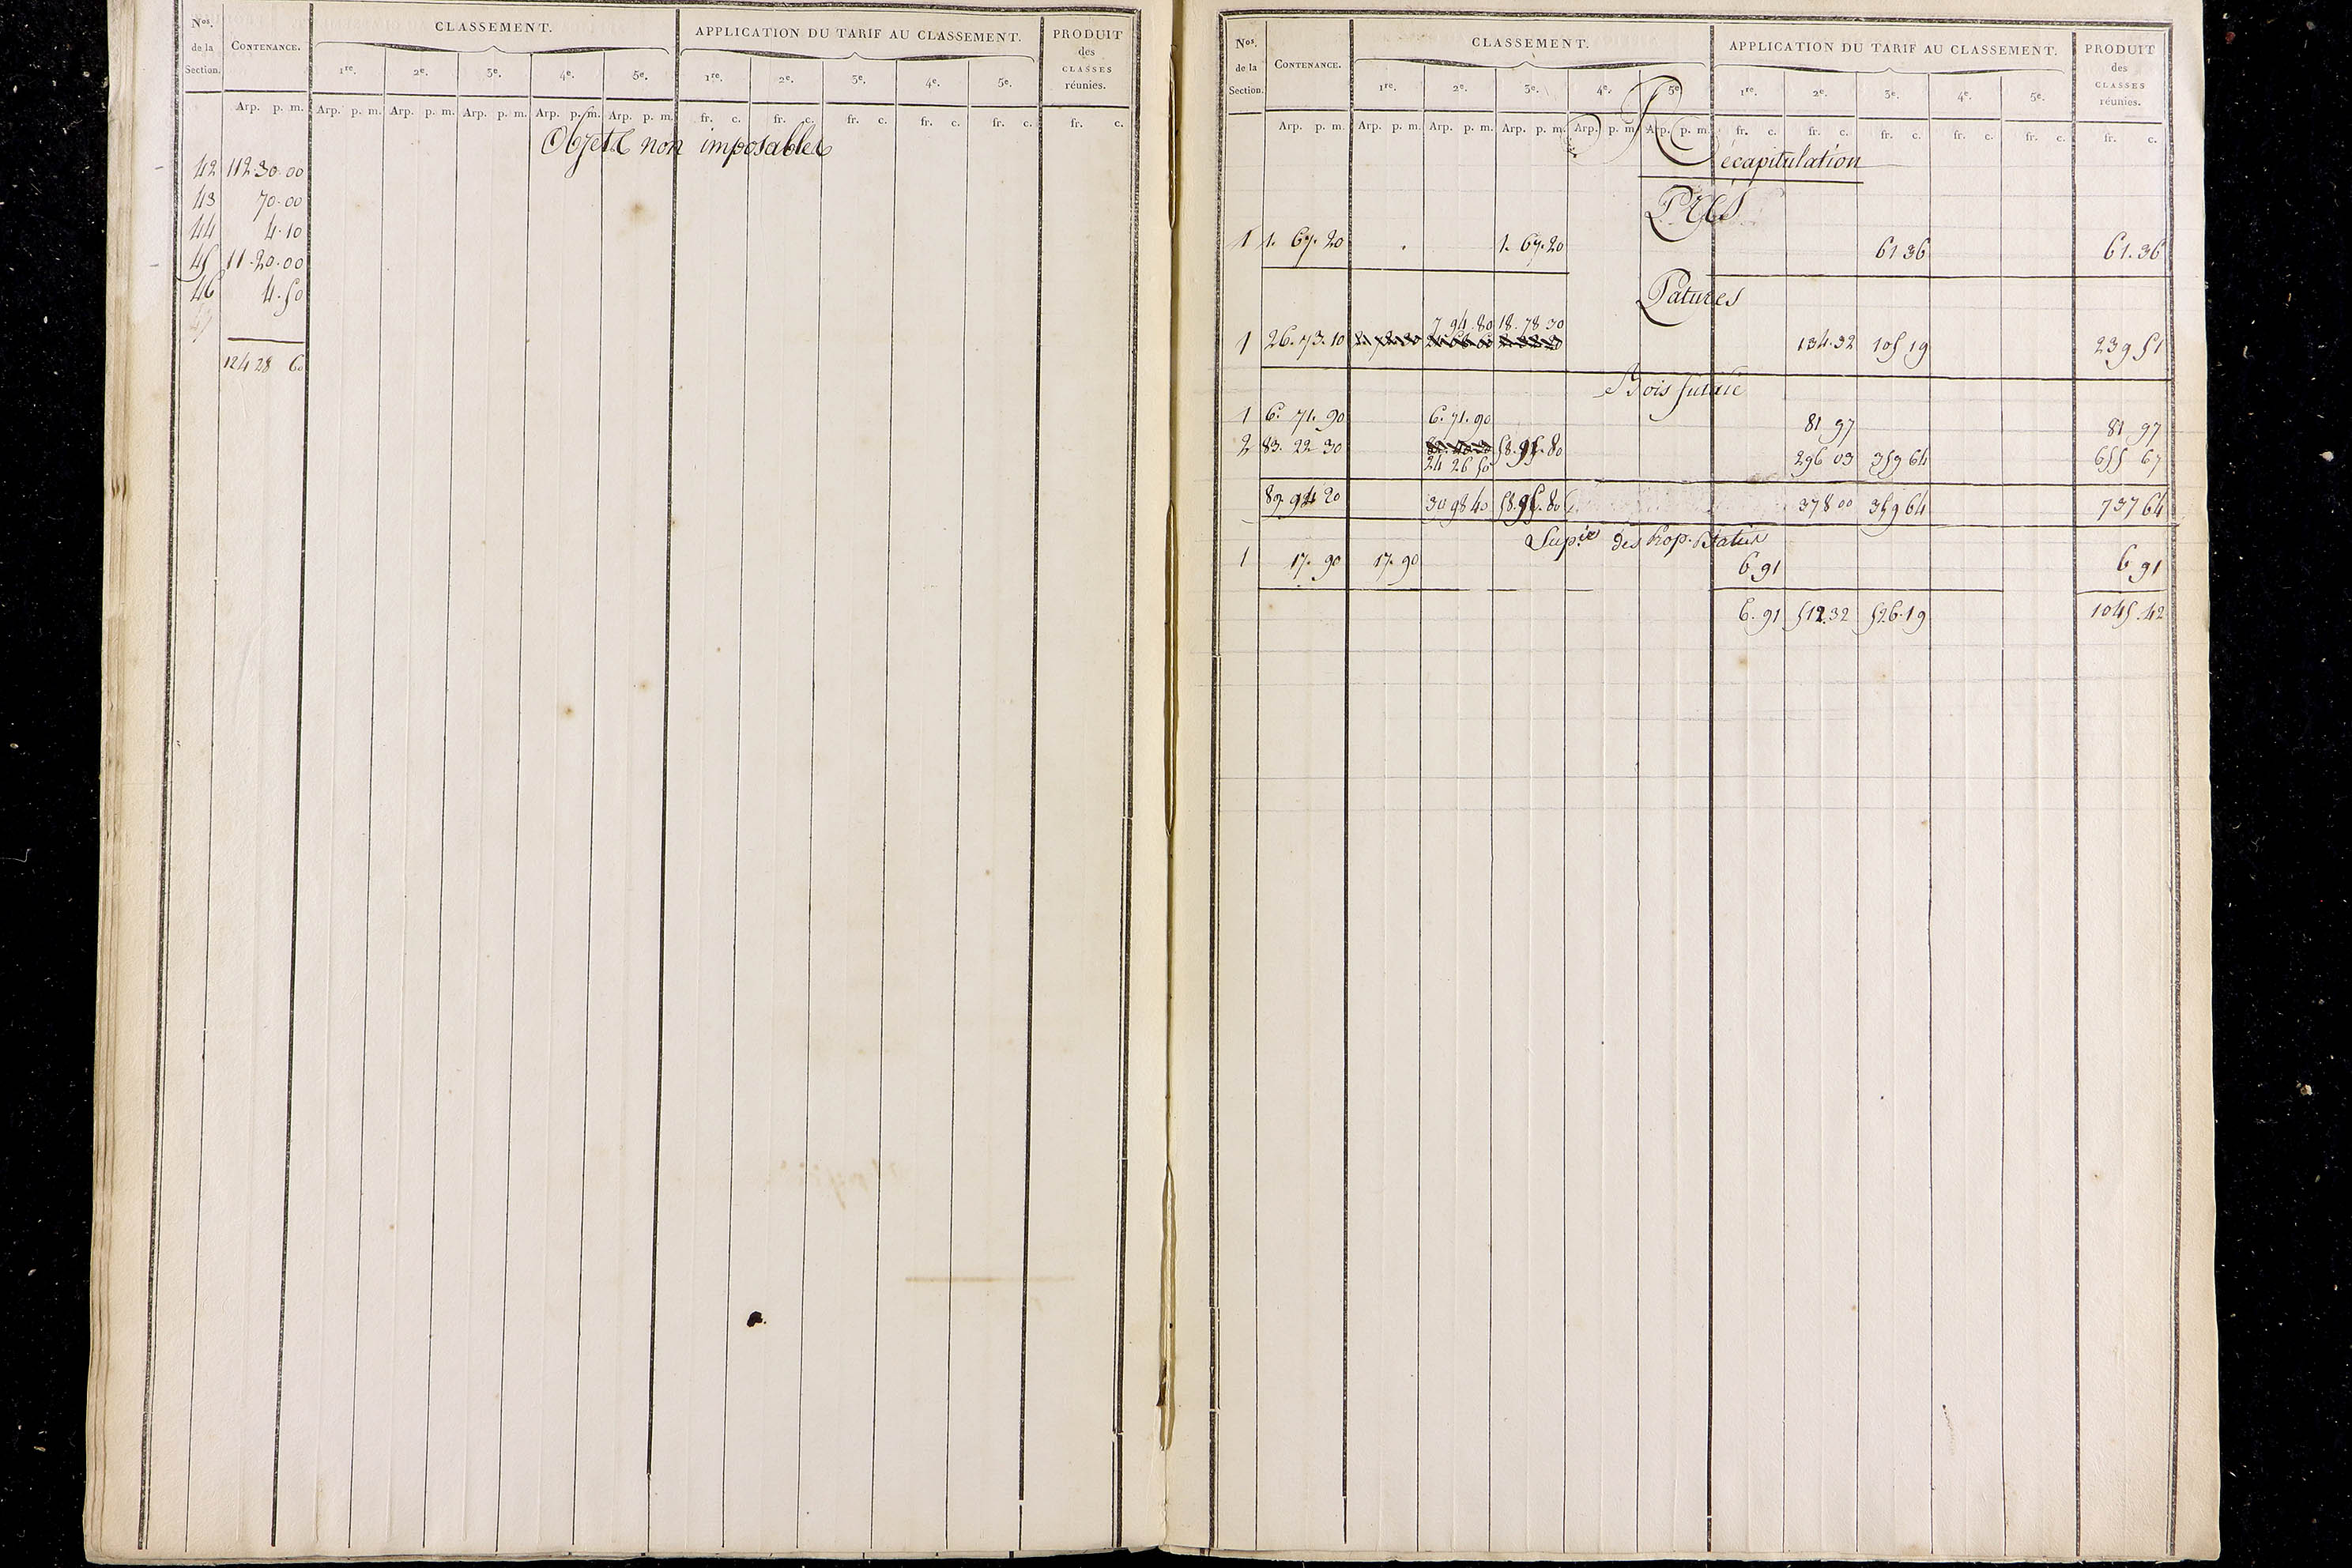 Nos. de la Section. CONTENANCE. CLASSEMENT. APPLICATION DU TARIF AU CLASSEMENT. PRODUIT des CLASSES réunies.
1re. 2e. 3e. 4e. 5e. 1re. 2e. 3e. 4e. 5e.
Arp. p. m. Arp. p. m. Arp. p. m. Arp. p. m. Arp. p. m. Arp. p. m. fr. c. fr. c. fr. c. fr. c. fr. c. fr. c.
Objets non imposables
42 112.30.00
43 70.00
44 4.10
45 11.20.00
46 4.50
47
124 28 60
Nos. de la Section. CONTENANCE. CLASSEMENT. APPLICATION DU TARIF AU CLASSEMENT. PRODUIT des CLASSES réunies.
1re. 2e. 3e. 4e. 5e. 1re. 2e. 3e. 4e. 5e.
Arp. p. m. Arp. p. m. Arp. p. m. Arp. p. m. Arp. p. m. Arp. p. m. fr. c. fr. c. fr. c. fr. c. fr. c. fr. c.
Récapitulation
Prés
1 1. 67. 20 1. 67. 20 61 36 61. 36
Patures
7 94. 80 18. 78 30
1 26. 73. 10 134. 32 105 19 239 51
Bois futaie
1 6. 71. 90 6. 71. 90 81 97 81 97
2 83. 22 30 58. 95. 80
24 26 50 296 03 359 64 655 67
89 94 20 30 98 40 58. 95. 80 378 00 359 64 737 64
Supie des Prop. Baties
1 17. 90 17. 90 6 91 6 91
6. 91 512. 32 526. 19 1045. 42